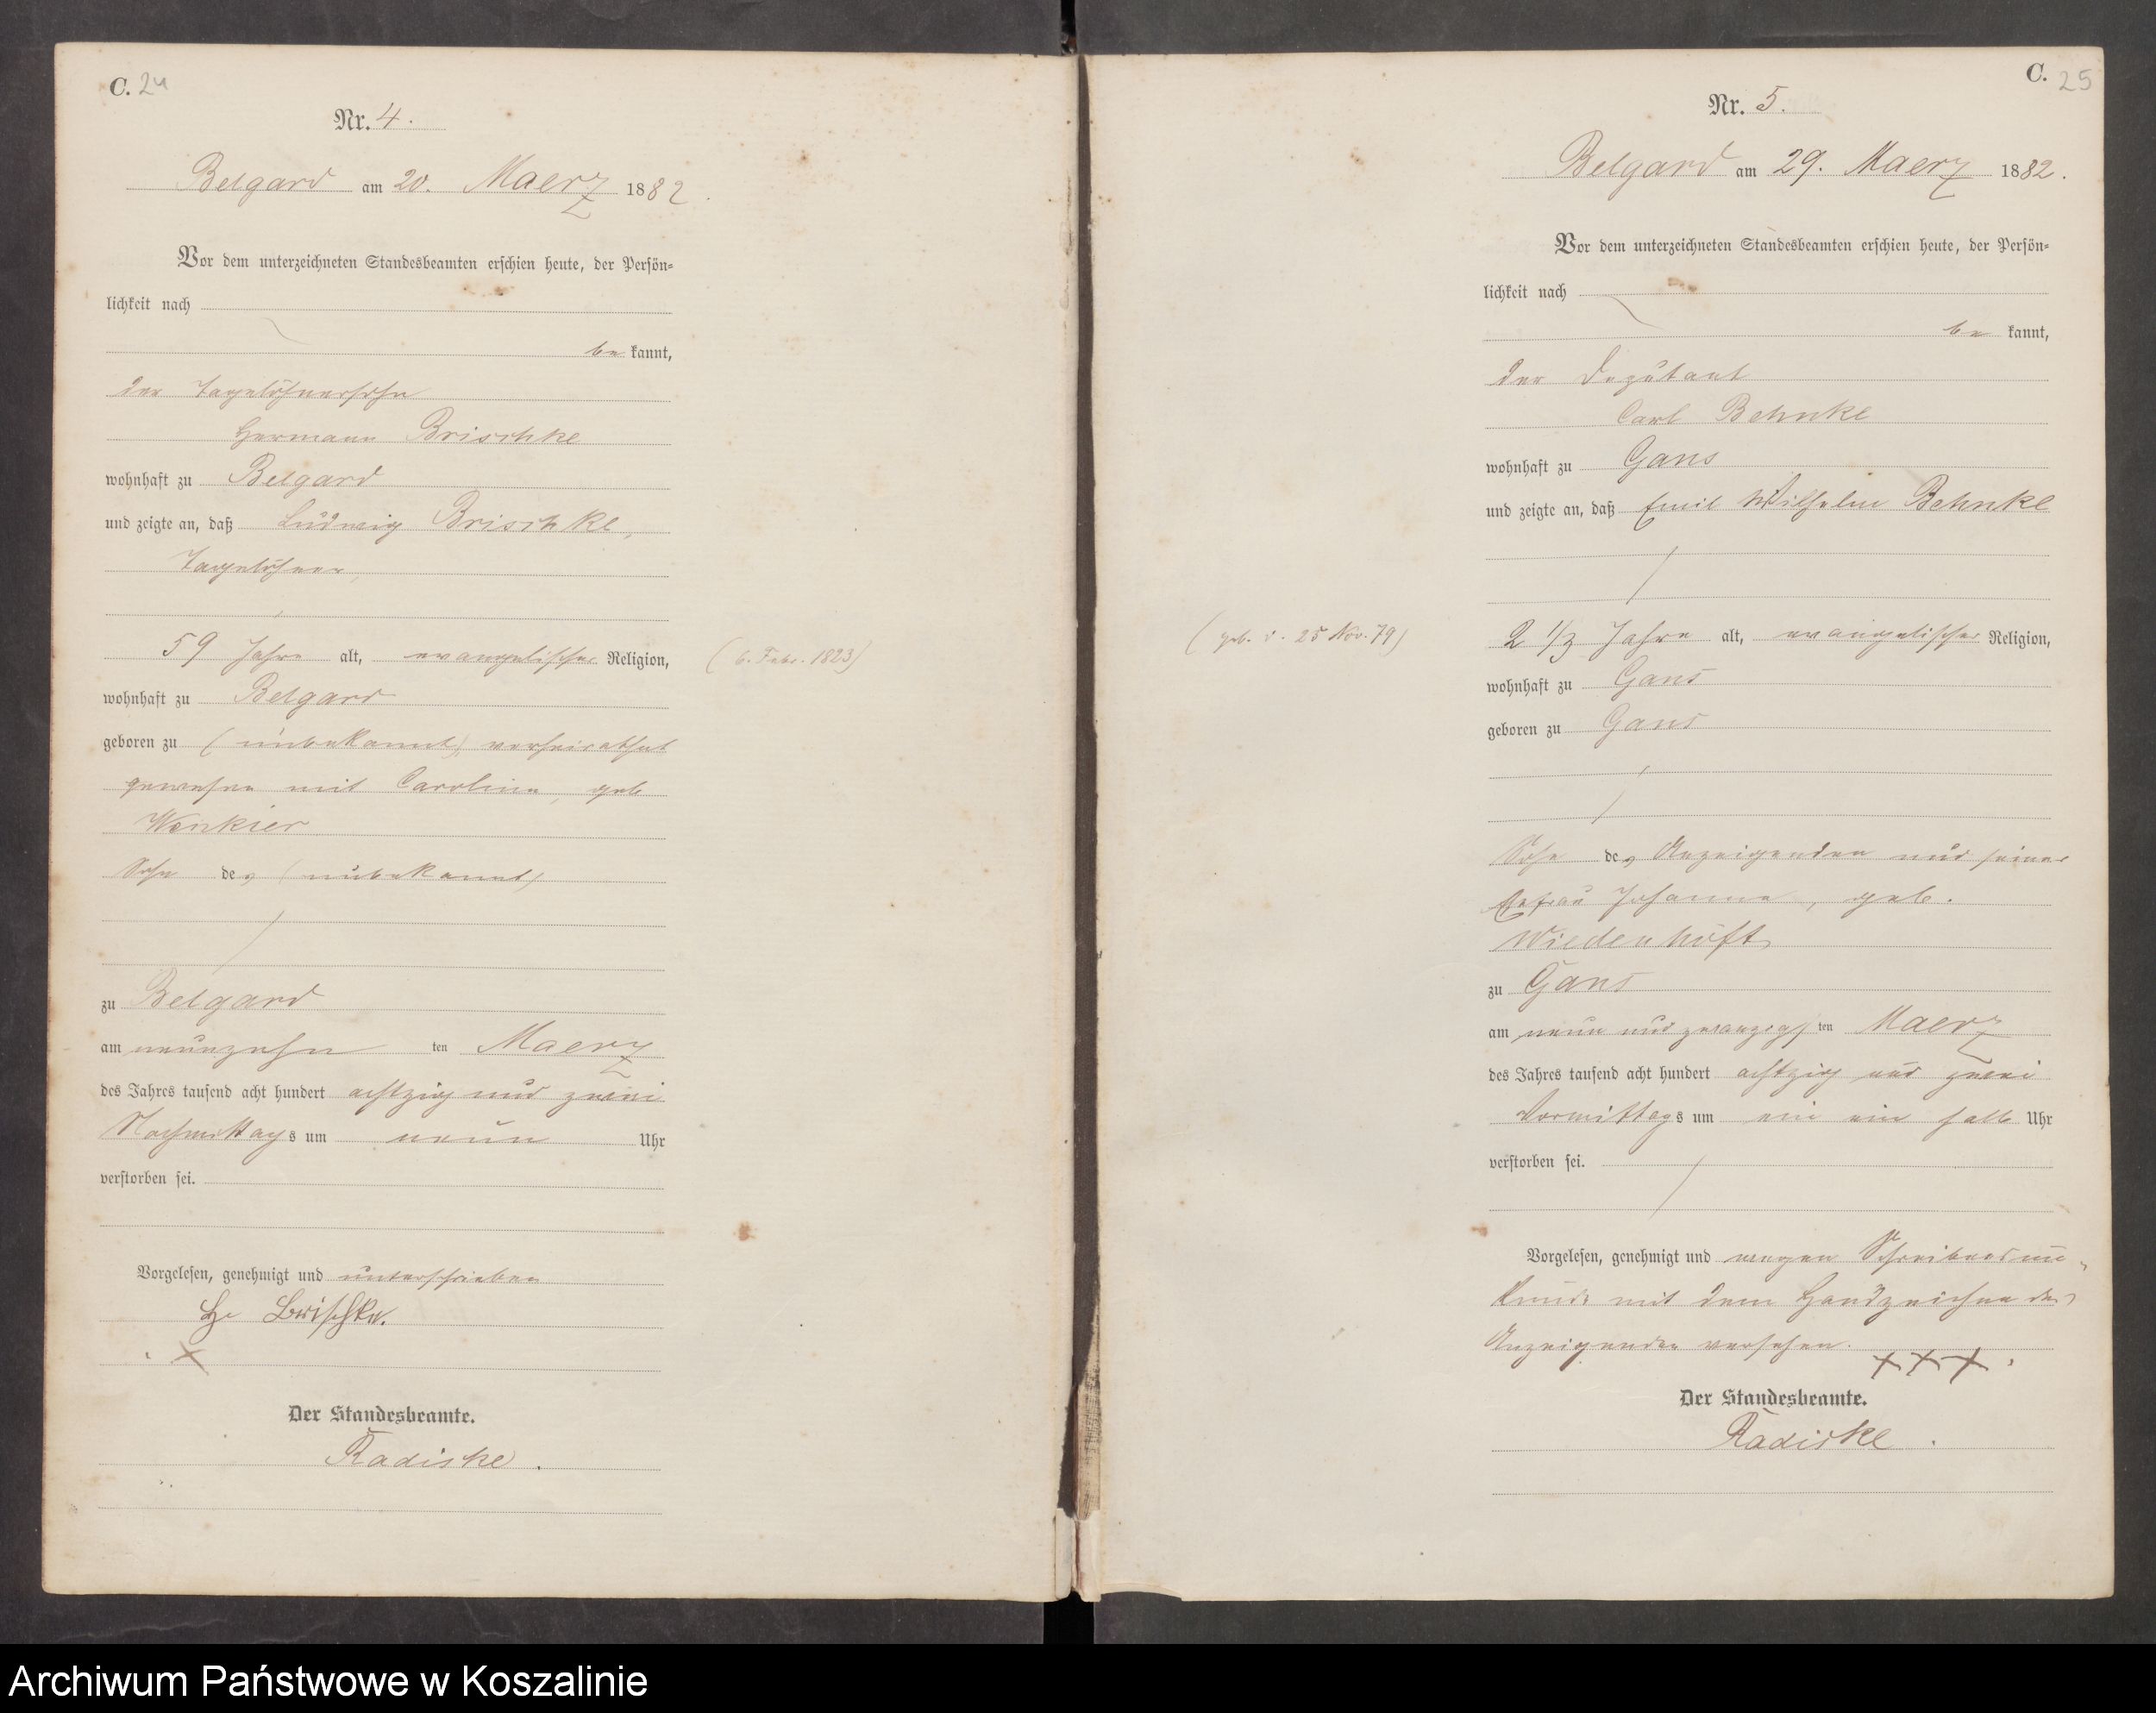 C. 24
Nr. 4.
Belgard am 20. Maerz 1882.
Vor dem unterzeichneten Standesbeamten erschien heute, der Persön-
lichkeit nach
be kannt,
der Tagelöhnersohn
Hermann Brischke
wohnhaft zu Belgard
und zeigte an, daß Ludwig Brischke,
Tagelöhner,
59 Jahre alt, evangelischer Religion, (6. Febr. 1823)
wohnhaft zu Belgard
geboren zu (unbekannt) verheirathet
gewesen mit Caroline, geb
Wenkier
Sohn des (unbekannt)
zu Belgard
am neunzehn ten Maerz
des Jahres tausend acht hundert achtzig und zwei
Nachmittags um neun Uhr
verstorben sei.
Vorgelesen, genehmigt und unterschrieben
He Brischke.
X
Der Standesbeamte.
Radiske.
C. 25
Nr. 5.
Belgard am 29. Maerz 1882.
Vor dem unterzeichneten Standesbeamten erschien heute, der Persön-
lichkeit nach
be kannt,
der Deputant
Carl Behnke
wohnhaft zu Gans
und zeigte an, daß Emil Wilhelm Behnke
(geb. d. 25 Nov. 79) 2 1/3 Jahre alt, evangelischer Religion,
wohnhaft zu Gans
geboren zu Gans
Sohn des Anzeigenden und seiner
Ehefrau Johanna, geb.
Wiedenhöft
zu Gans
am neun und zwanzigs ten Maerz
des Jahres tausend acht hundert achtzig und zwei
Vormittags um ein ein halb Uhr
verstorben sei.
Vorgelesen, genehmigt und wegen Schreibens un-
kunde mit dem Handzeichen des
Anzeigenden versehen.
XXX.
Der Standesbeamte.
Radiske.
Archiwum Państwowe w Koszalinie